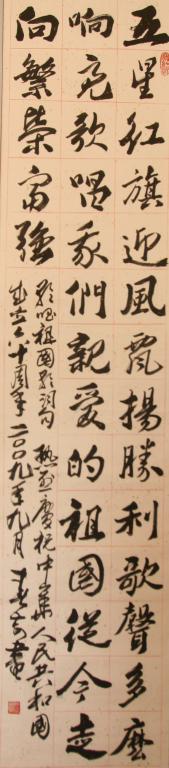 五星红旗迎風飄揚勝利歌聲多麽
响亮歌唱我們親爱的祖國從今走
向繁荣富强
歌唱祖國歌詞句 热烈慶祝中華人民共和國
成立六十周年 二〇〇九年九月